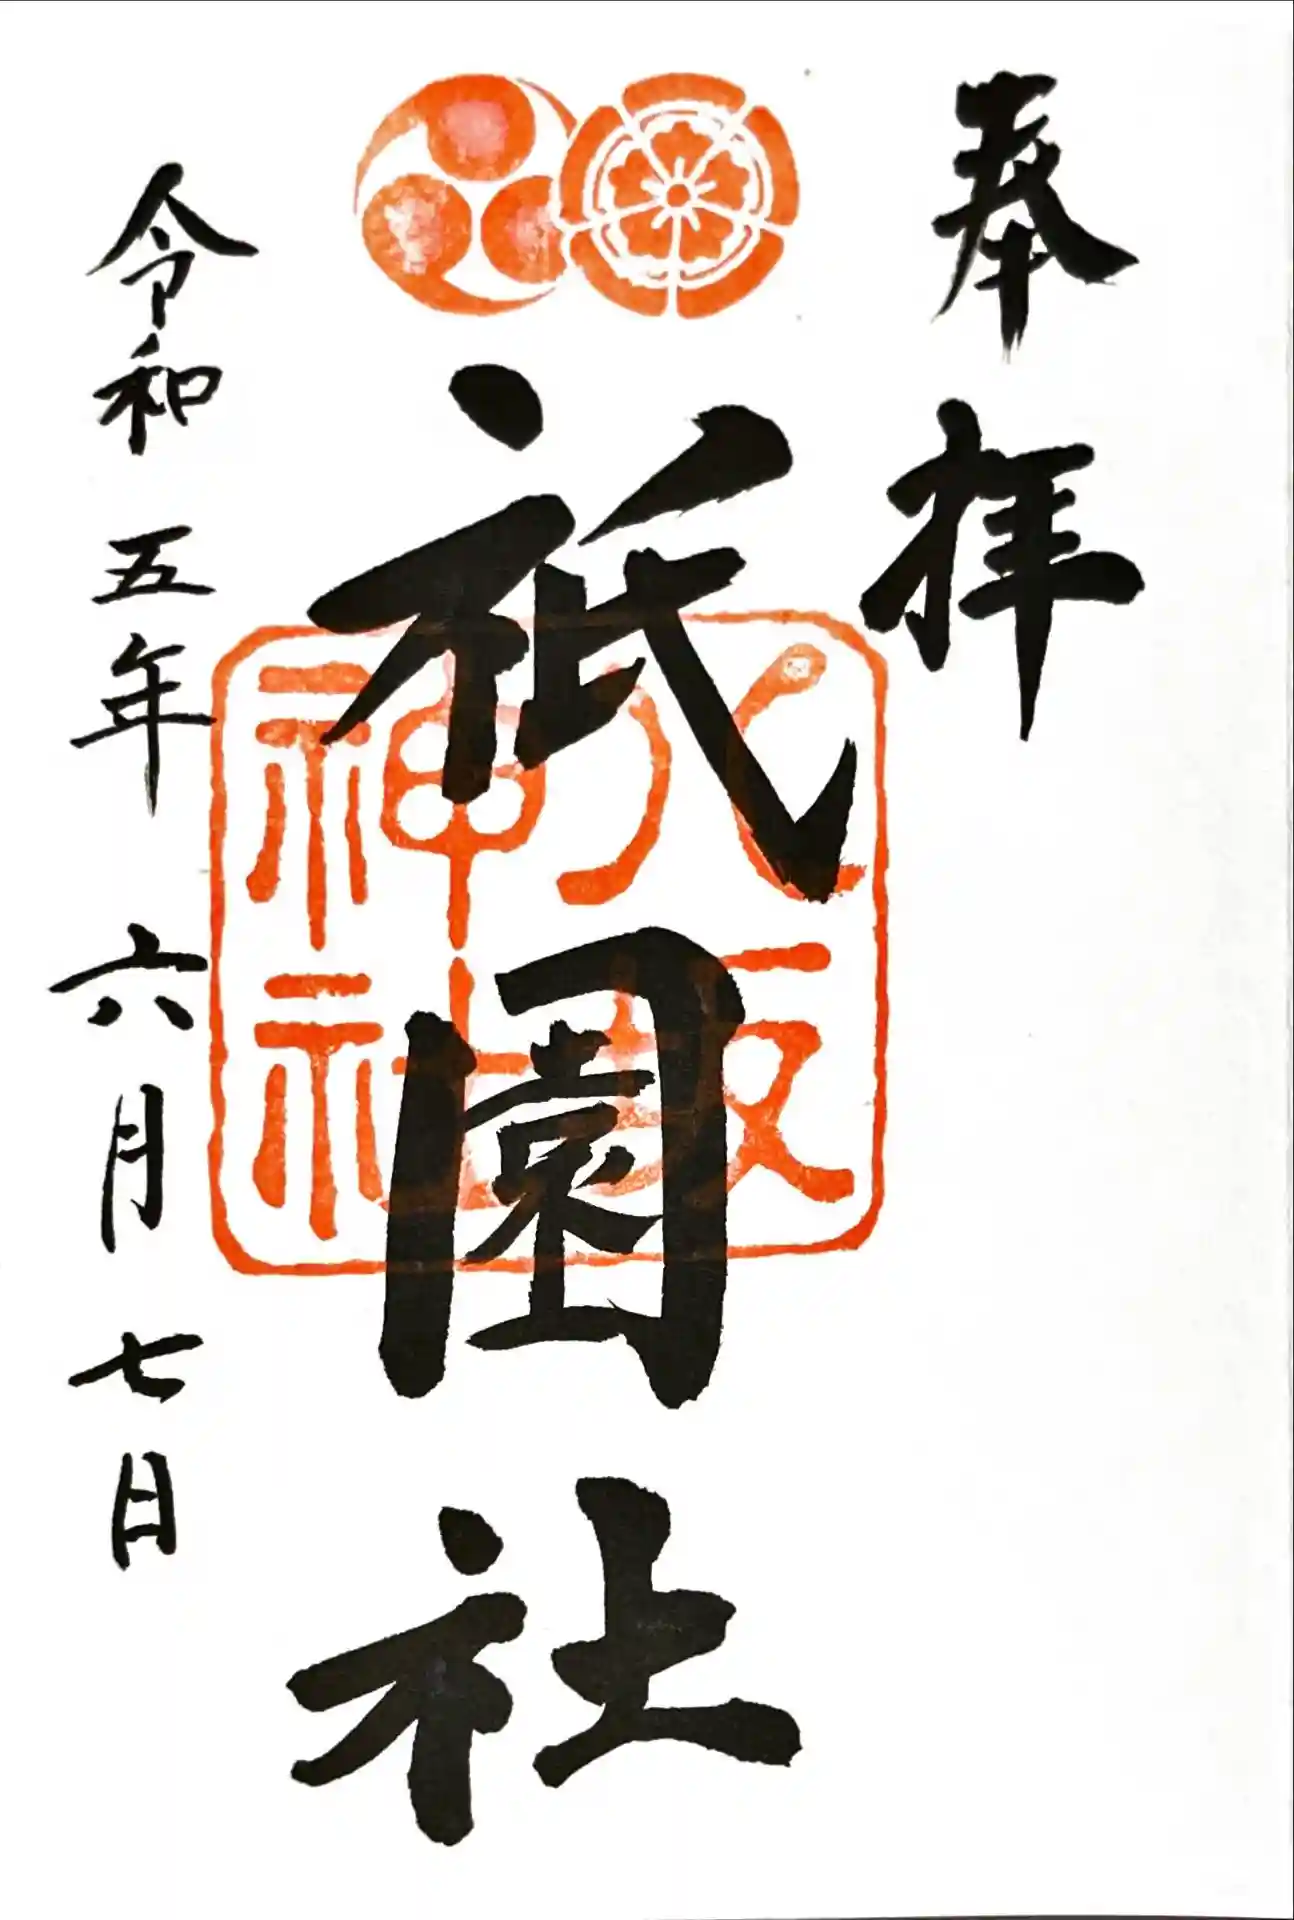 奉拝
祇園社
八坂神社
令和五年六月七日